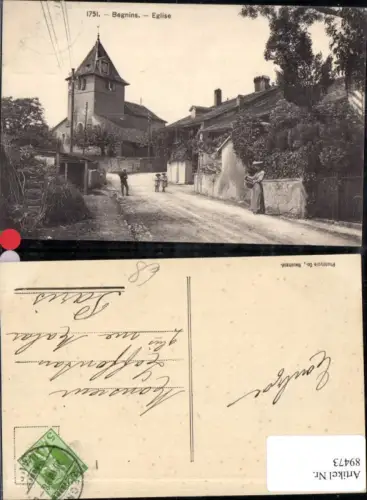 1751. – Begnins. – Eglise
Phototypie Co., Neuchâtel.
68
Monsieur
Laffontan
2 bis rue Malar
Paris
Artikel Nr.
89473